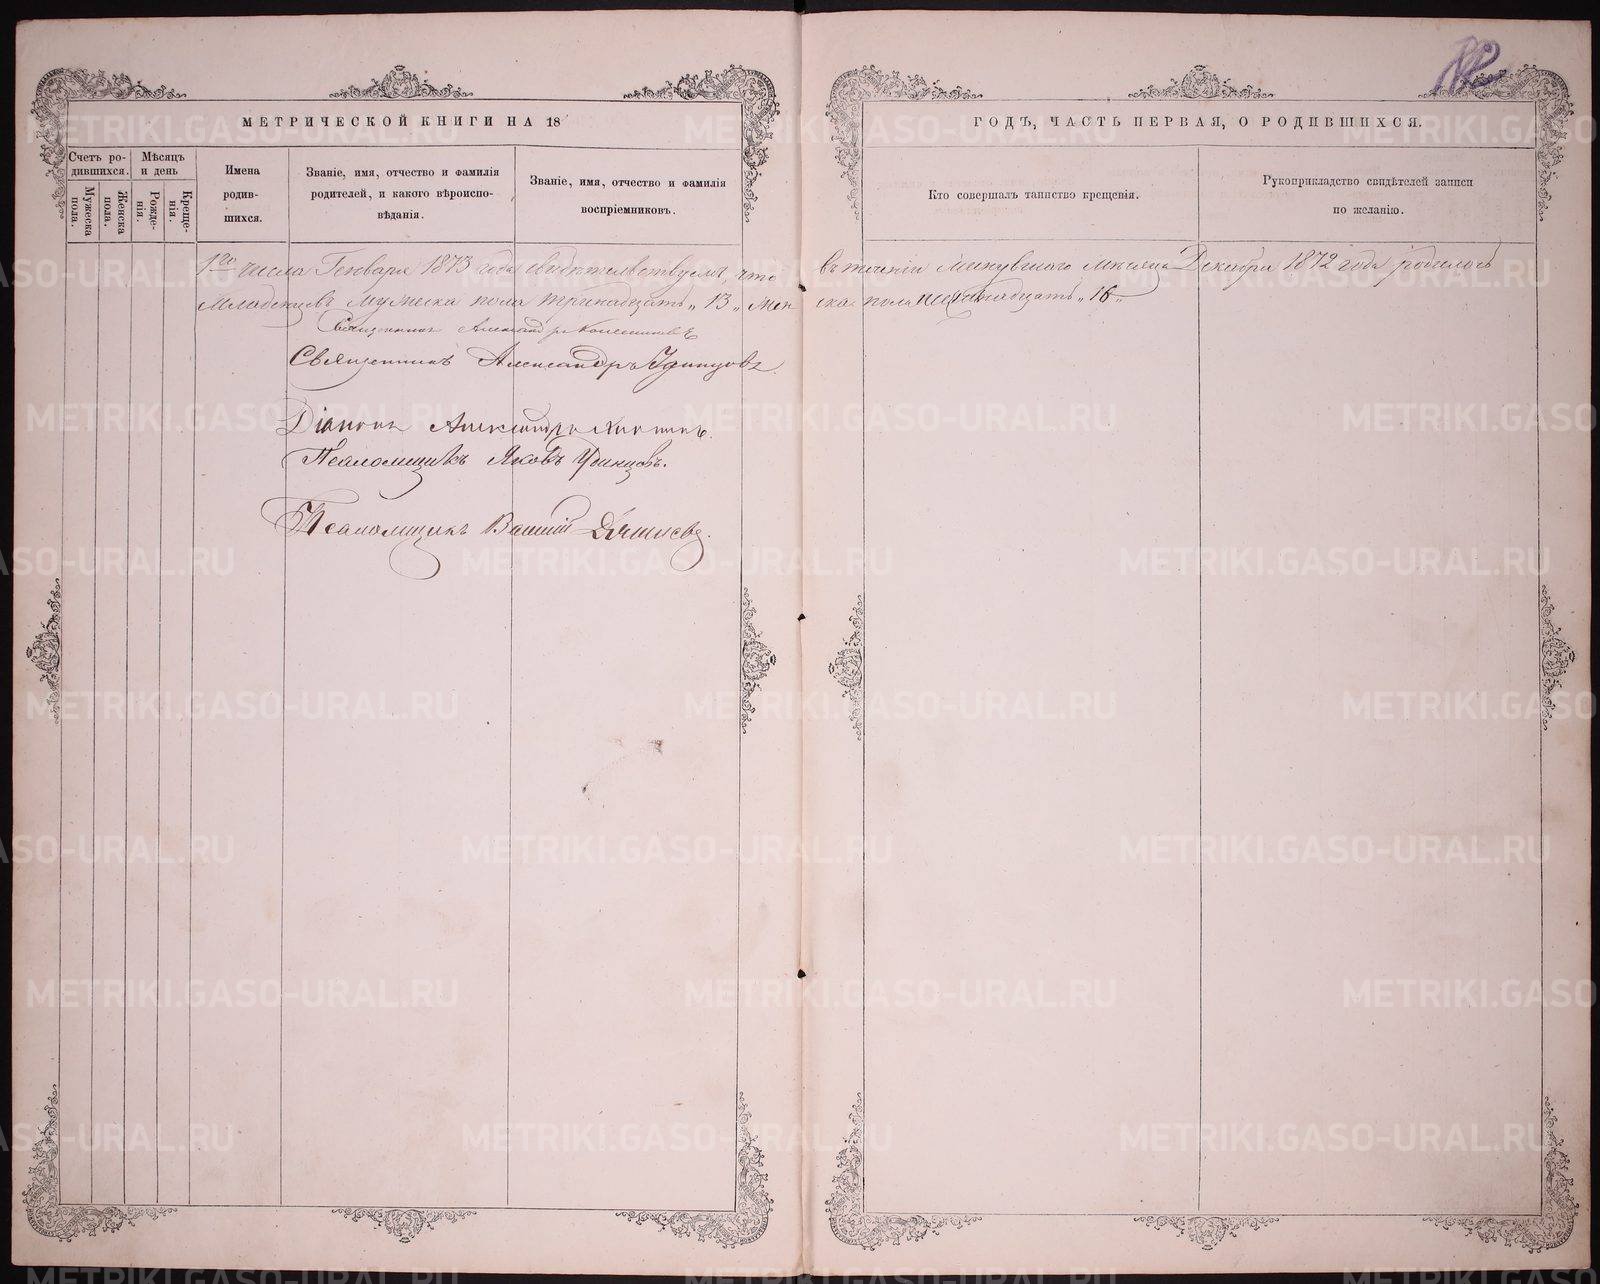 МЕТРИЧЕСКОЙ КНИГИ НА 18
ГОДЪ, ЧАСТЬ ПЕРВАЯ, О РОДИВШИХСЯ.
Счетъ ро-
дившихся.
Мужеска
пола.
Женска
пола.
Мѣсяцъ
и день
Рожде-
нія.
Креще-
нія.
Имена
родив-
шихся.
Званіе, имя, отчество и фамилія
родителей, и какого вѣроиспо-
вѣданія.
Званіе, имя, отчество и фамилія
воспріемниковъ.
Кто совершалъ таинство крещенія.
Рукоприкладство свидѣтелей записи
по желанію.
1го числа Генваря 1873 года свидѣтельствуемъ, что въ теченіи минувшаго мѣсяца Декабря 1872 года родилось
Младенцевъ мужеска пола тринадцать „13„ жен ска пола шестнадцать „16„
Священникъ Александръ
Священникъ Александръ Удинцовъ
Діаконъ Александръ
Псаломщикъ Яковъ Удинцовъ.
Псаломщикъ Василій
METRIKI.GASO-URAL.RU